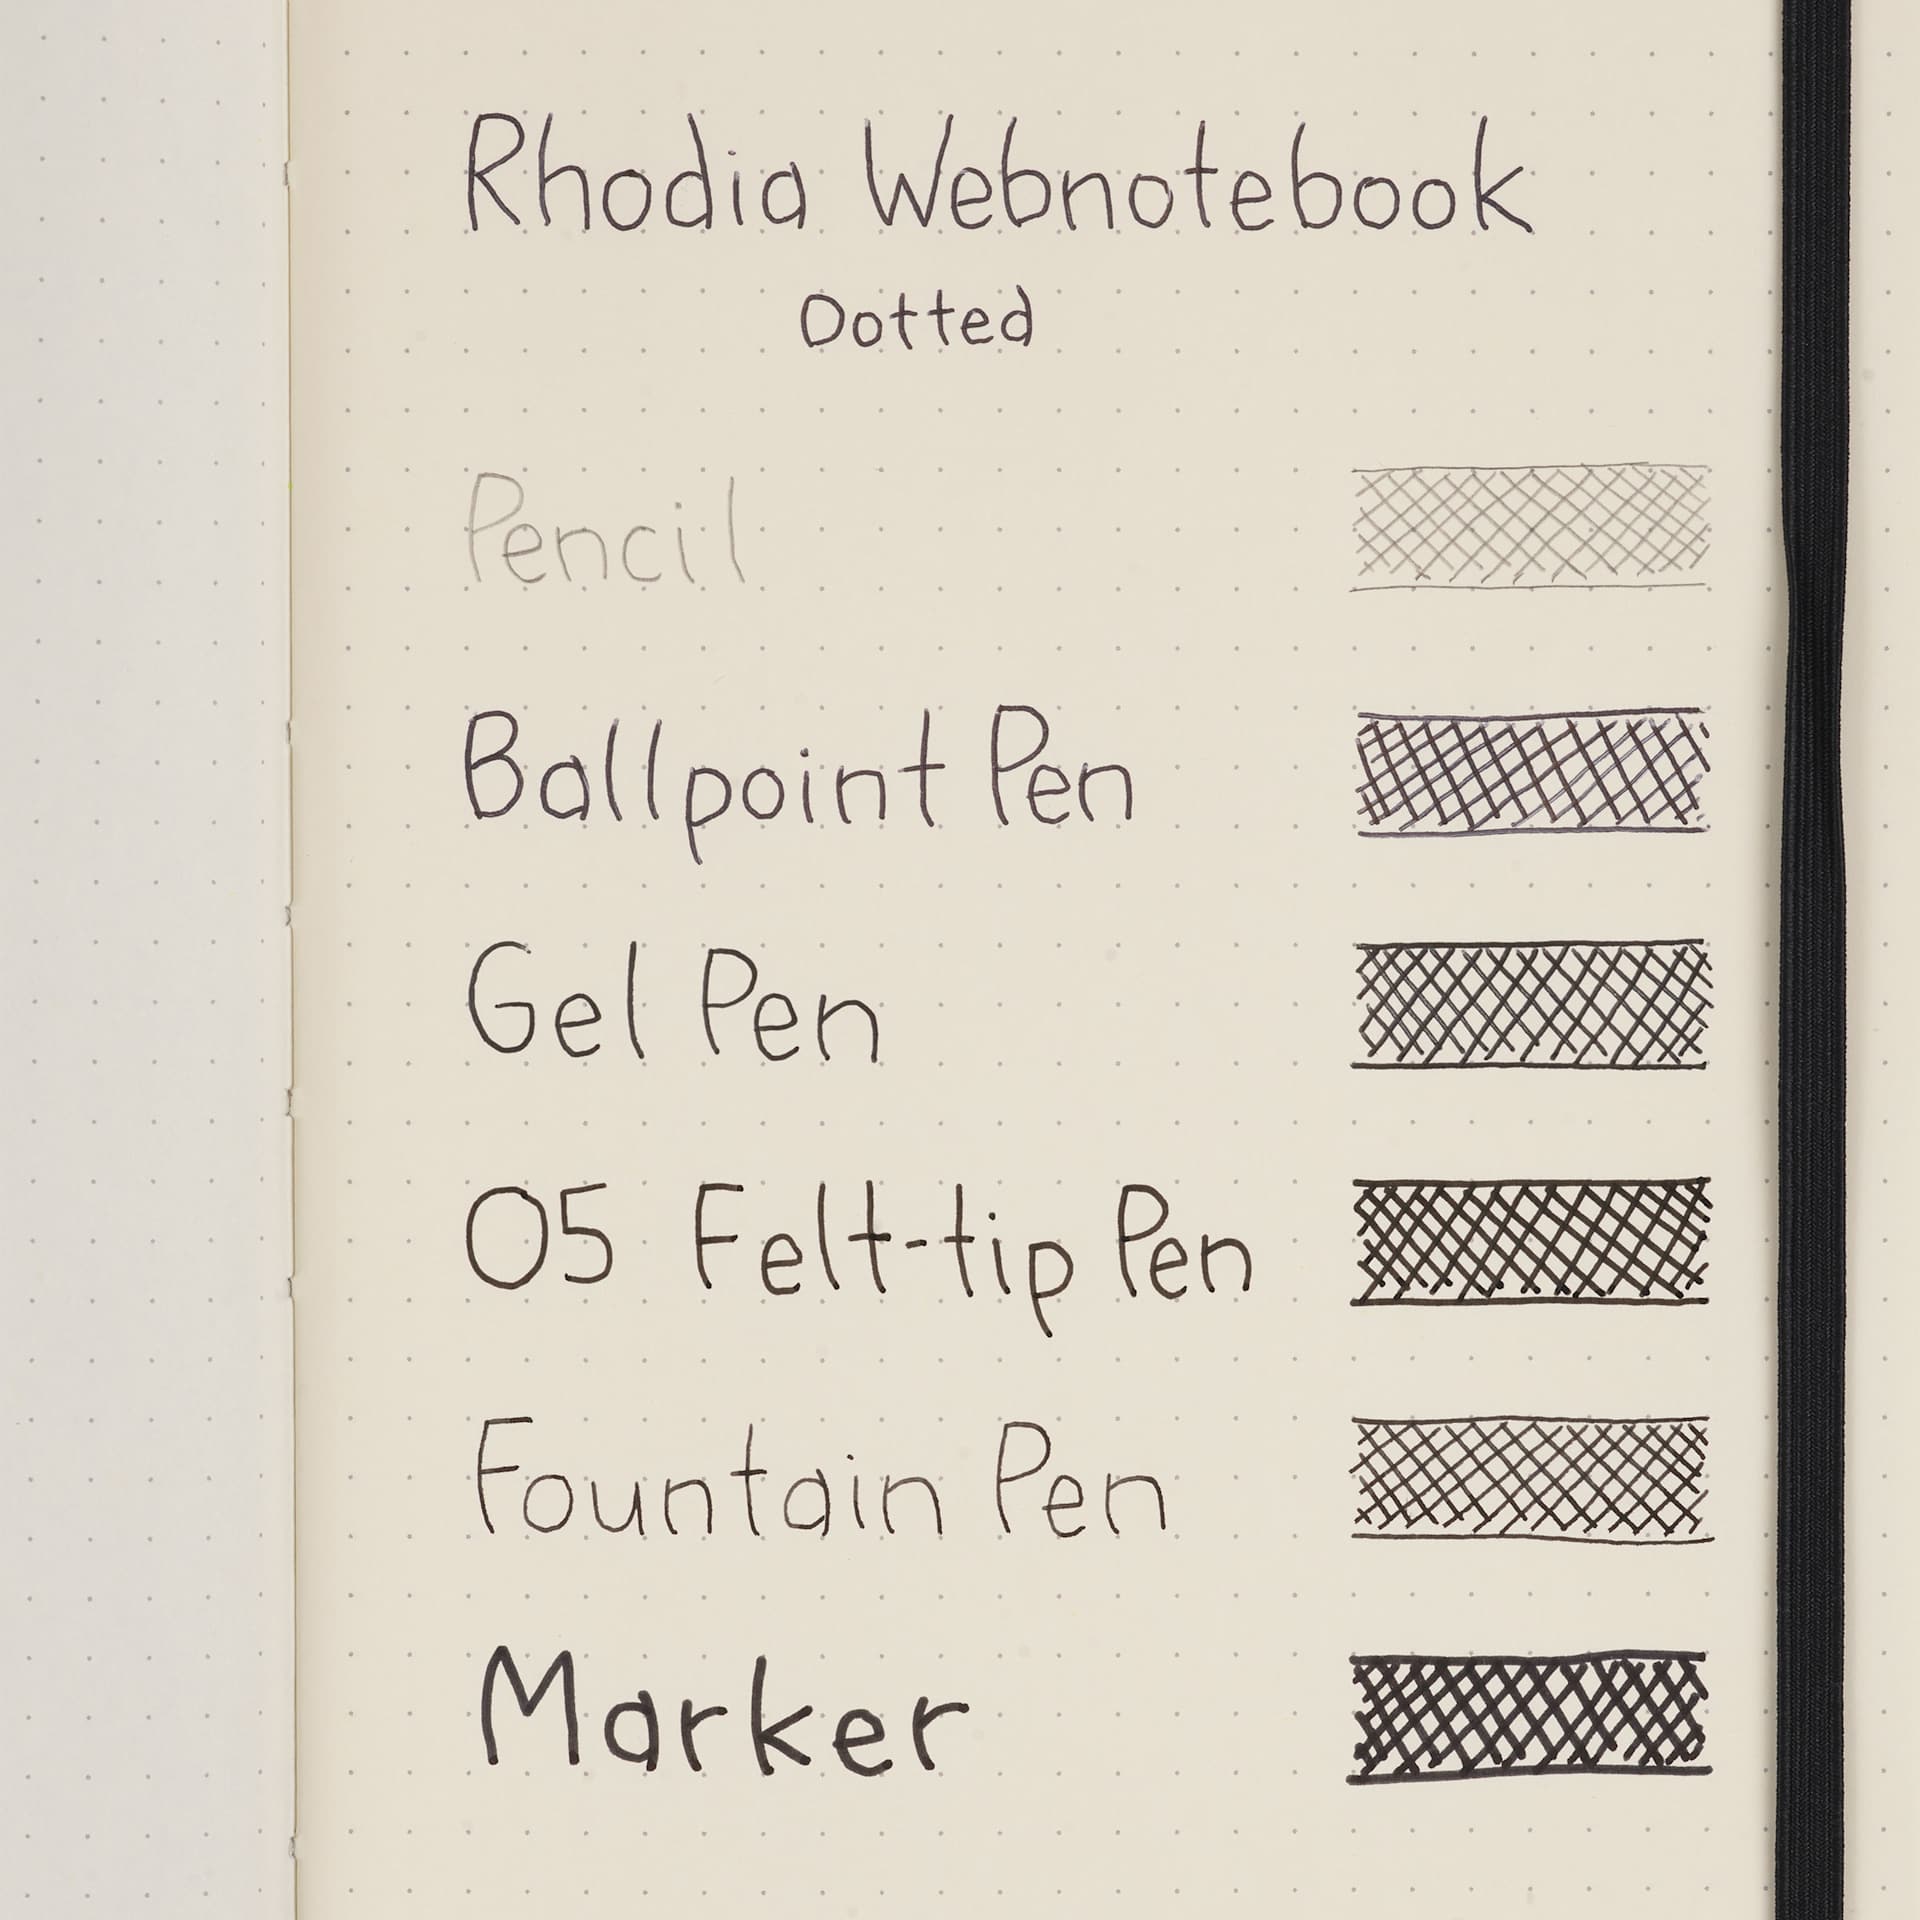 Rhodia Webnotebook
Dotted
Pencil
Ballpoint Pen
Gel Pen
05 Felt-tip Pen
Fountain Pen
Marker